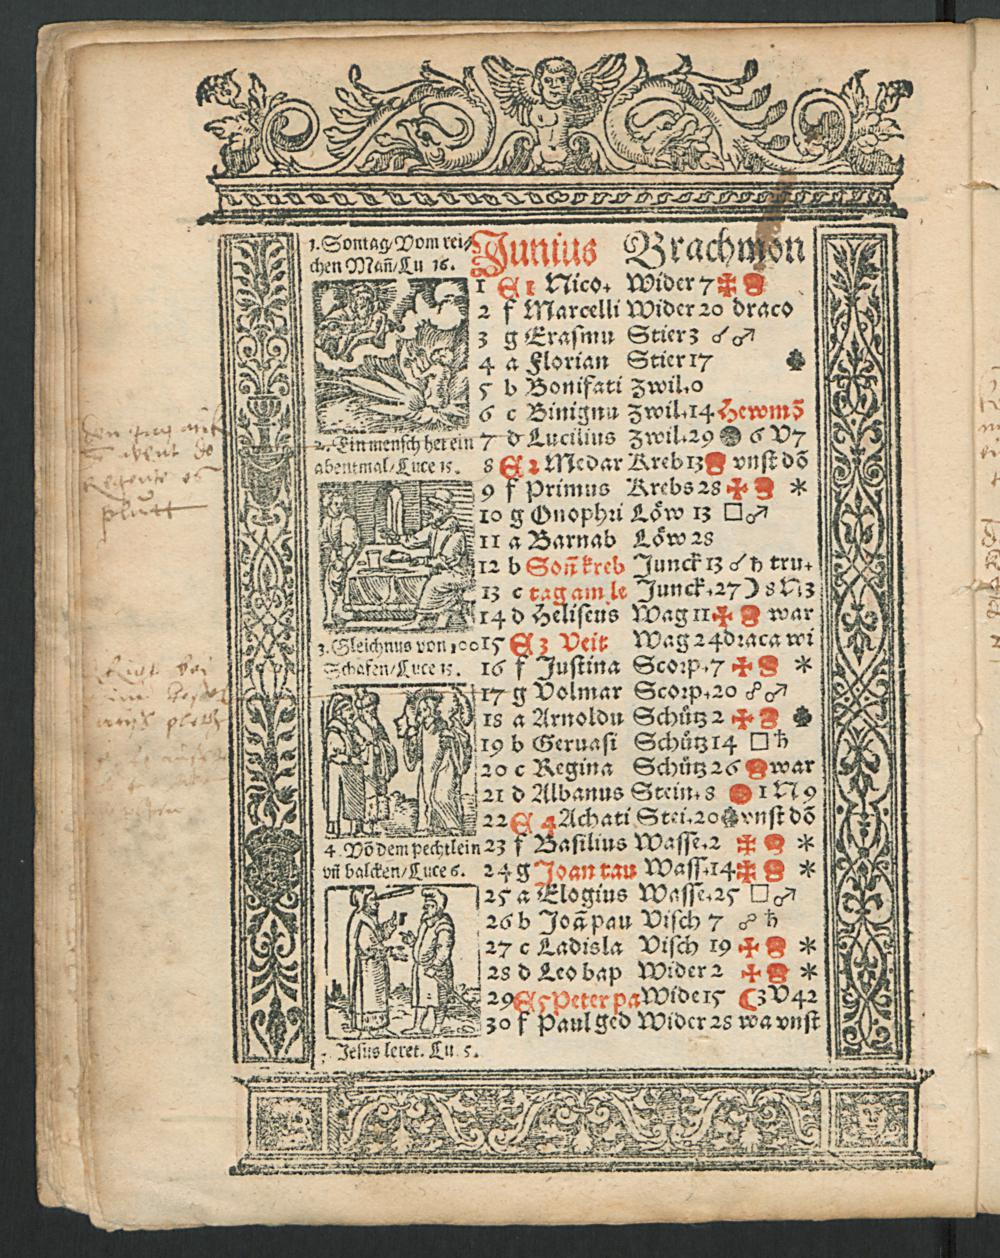 1. Sontag/ Vom rei⸗
chen Mañ/ Lu 16.
Junius Brachmon
1 A 1 Nico. Wider 7
2 f Marcelli Wider 20 draco
3 g Erasmu Stier 3 ☌ ♂
4 a Florian Stier 17
5 b Bonifati Zwil. 0
6 c Binignu Zwil. 14 Hewmō
2. Ein mensch het ein
abentmal/ Luce 15.
7 d Lucilius Zwil. 29 6 V 7
8 A 2 Medar Kreb 13 vnst dō
9 f Primus Krebs 28 *
10 g Onophri Löw 13 □ ♂
11 a Barnab Löw 28
12 b Soñ kreb Junck 13 ☌ ♄ tru.
13 c tag am le Junck. 27 ☽ 8 N 13
14 d Heliseus Wag 11 war
3. Gleichnus von 100
Schafen/ Luce 15.
15 A 3 Veit Wag 24 draca wi
16 f Justina Scorp. 7 *
17 g Volmar Scorp. 20 ☍ ♂
18 a Arnoldu Schütz 2
19 b Geruasi Schütz 14 □ ♄
20 c Regina Schütz 26 war
21 d Albanus Stein. 8 1 N 9
22 A 4 Achati Stei. 20 vnst dō
4. Vō dem pechtlein
vñ balcken/ Luce 6.
23 f Basilius Wasse. 2 *
24 g Joan tau Wass. 14 *
25 a Elogius Wasse. 25 □ ♂
26 b Joā pau Visch 7 ☍ ♄
27 c Ladisla Visch 19 *
28 d Leo bap Wider 2 *
29 A 5 Peter pa Wide 15 ☾ 3 V 42
30 f Paul ged Wider 28 wa vnst
5. Jesus leret. Lu. 5.